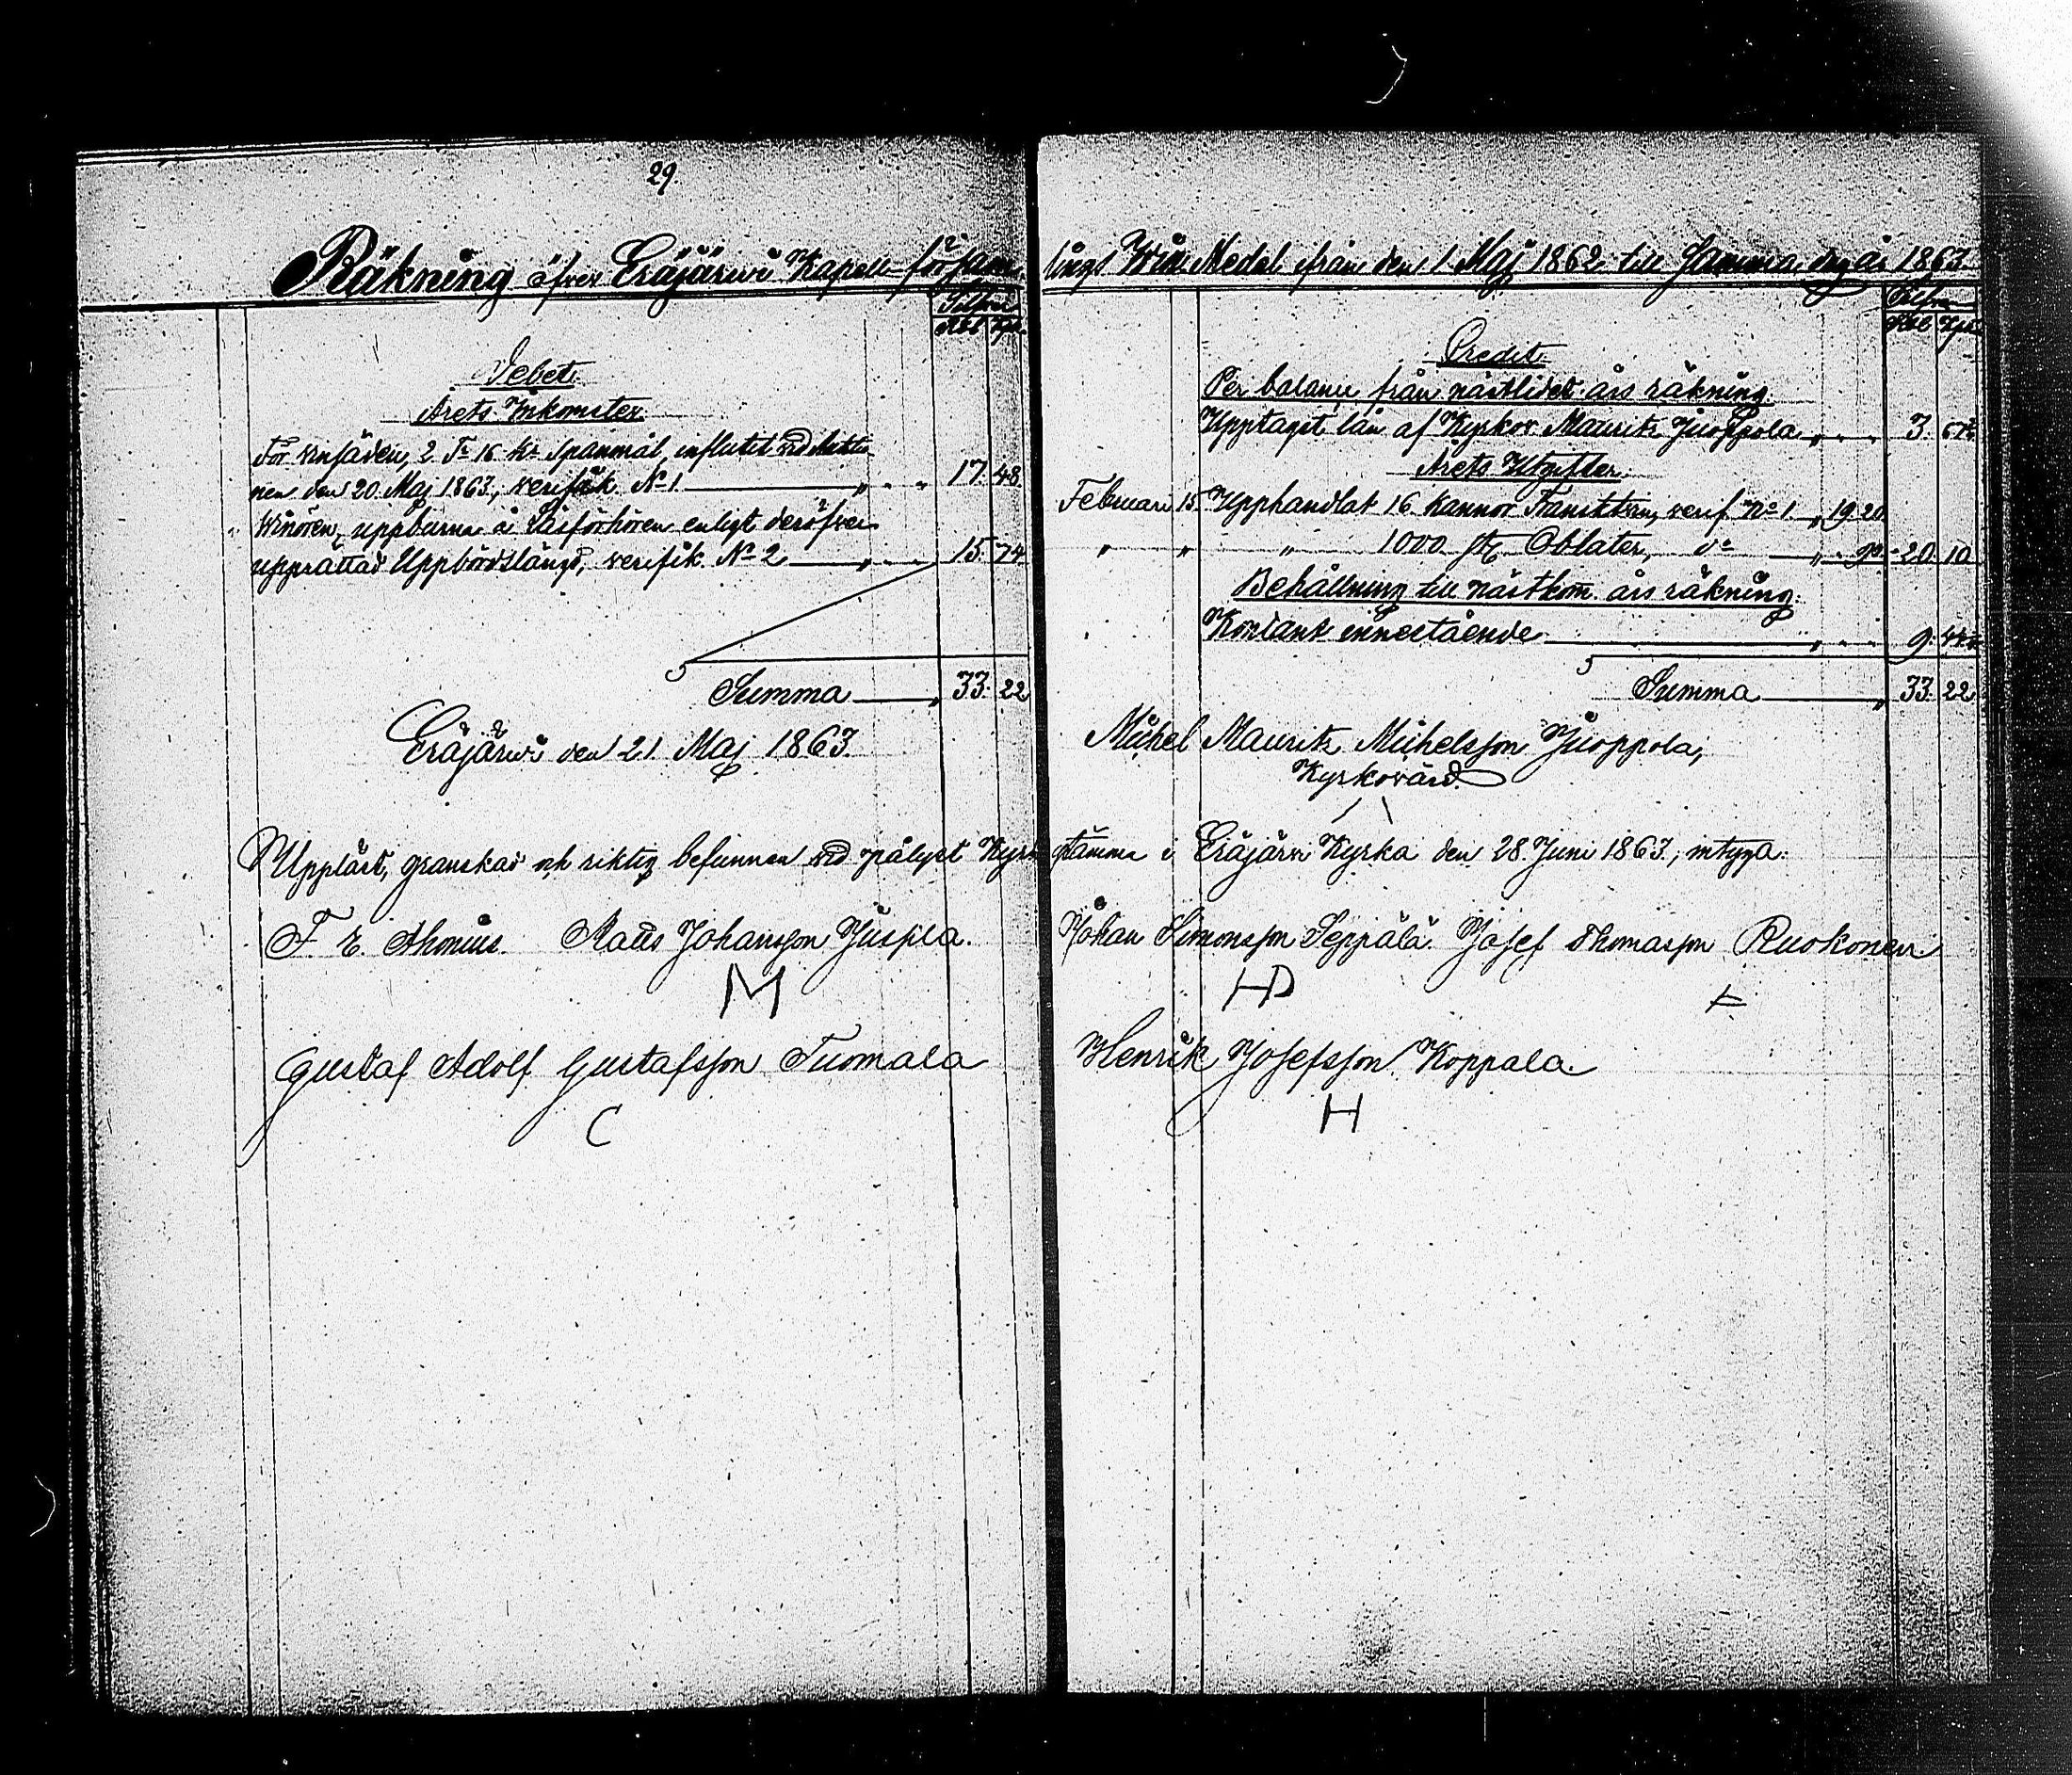 29.
Räkning öfver Eräjärwi Kapell-församlings Win Medel ifrån den 1 Maj 1862 till samma dag år 1863.
Silfver
Rbl Kpk.
Debet.
Årets Inkomster.
För winsäden, 2 Tr 16 kr Spanmål, influtit vid Auktionen den 20 Maj 1863, verifik. No 1 17. 48.
Winören, uppburna å Läsförhören enligt deröfver
upprättad Uppbördslängd, verifik. No 2 15. 74
Summa 33. 22
Eräjärwi den 21. Maj 1863.
Silfver
Rbl Kpk
Credit.
Per balance från nästlidet års räkning.
Upptaget lån af Kyrkov. Maurits Juoppola 3. 67½
Årets Utgifter.
Februari 15. Upphandlat 16 kannor Fransktwin, verif. No 1. 19. 20
" " " 1000 st. Oblater, do 90. 20. 10
Behållning till nästkom. års räkning.
Kontant innestående 9. 44½
Summa 33. 22
Michel Maurits Michelsson Juoppola,
Kyrkovärd.
Uppläst, granskad och riktig befunnen vid pålyst Kyrkostämma i Eräjärvi Kyrka den 28. Juni 1863, intyga:
F. E. Ahonius. Matts Johansson Juspla. Johan Simonsson Seppälä. Josef Thomasson Ruokonen
M HD
Gustaf Adolf Gustafsson Tuomala Henrik Josefsson Koppala.
C H